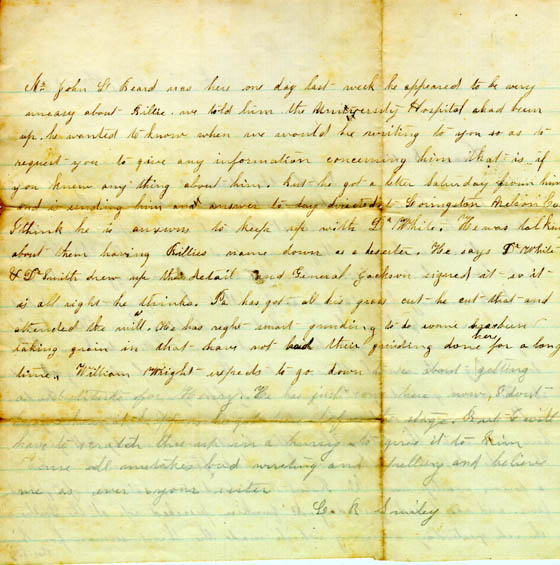 Mr John St Beard was here one day last week he appeared to be very
uneasy about Billie. we told him the University Hospital ahad been
up. he wanted to know when we would be writing to you so as to
request you to give any information concerning him that is if
you knew any thing about him. but he got a letter Saturday from him
and is sending him and answer to day directed to Lovingston Nelson Co
I think he is anxious to keep up with Dr White. He was talking
about them having Billies name down as a deserter. He says Dr White
& Dr Smith drew up the detail and General Jackson signed it so it
is all right he thinks. Pa has got all his grass cut he cut that and
attended the mill. He has right smart grinding to do some
taking grain in that have not had their grinding done for a long
time. William Wright expects to go down to see about getting
a substitute for Henry. He has just come here now, I dont
stage. But I will
have to scratch this up in a hurry to give it to him
all mistakes bad writing and spelling and believe
me as ever your sister
C. R Smiley